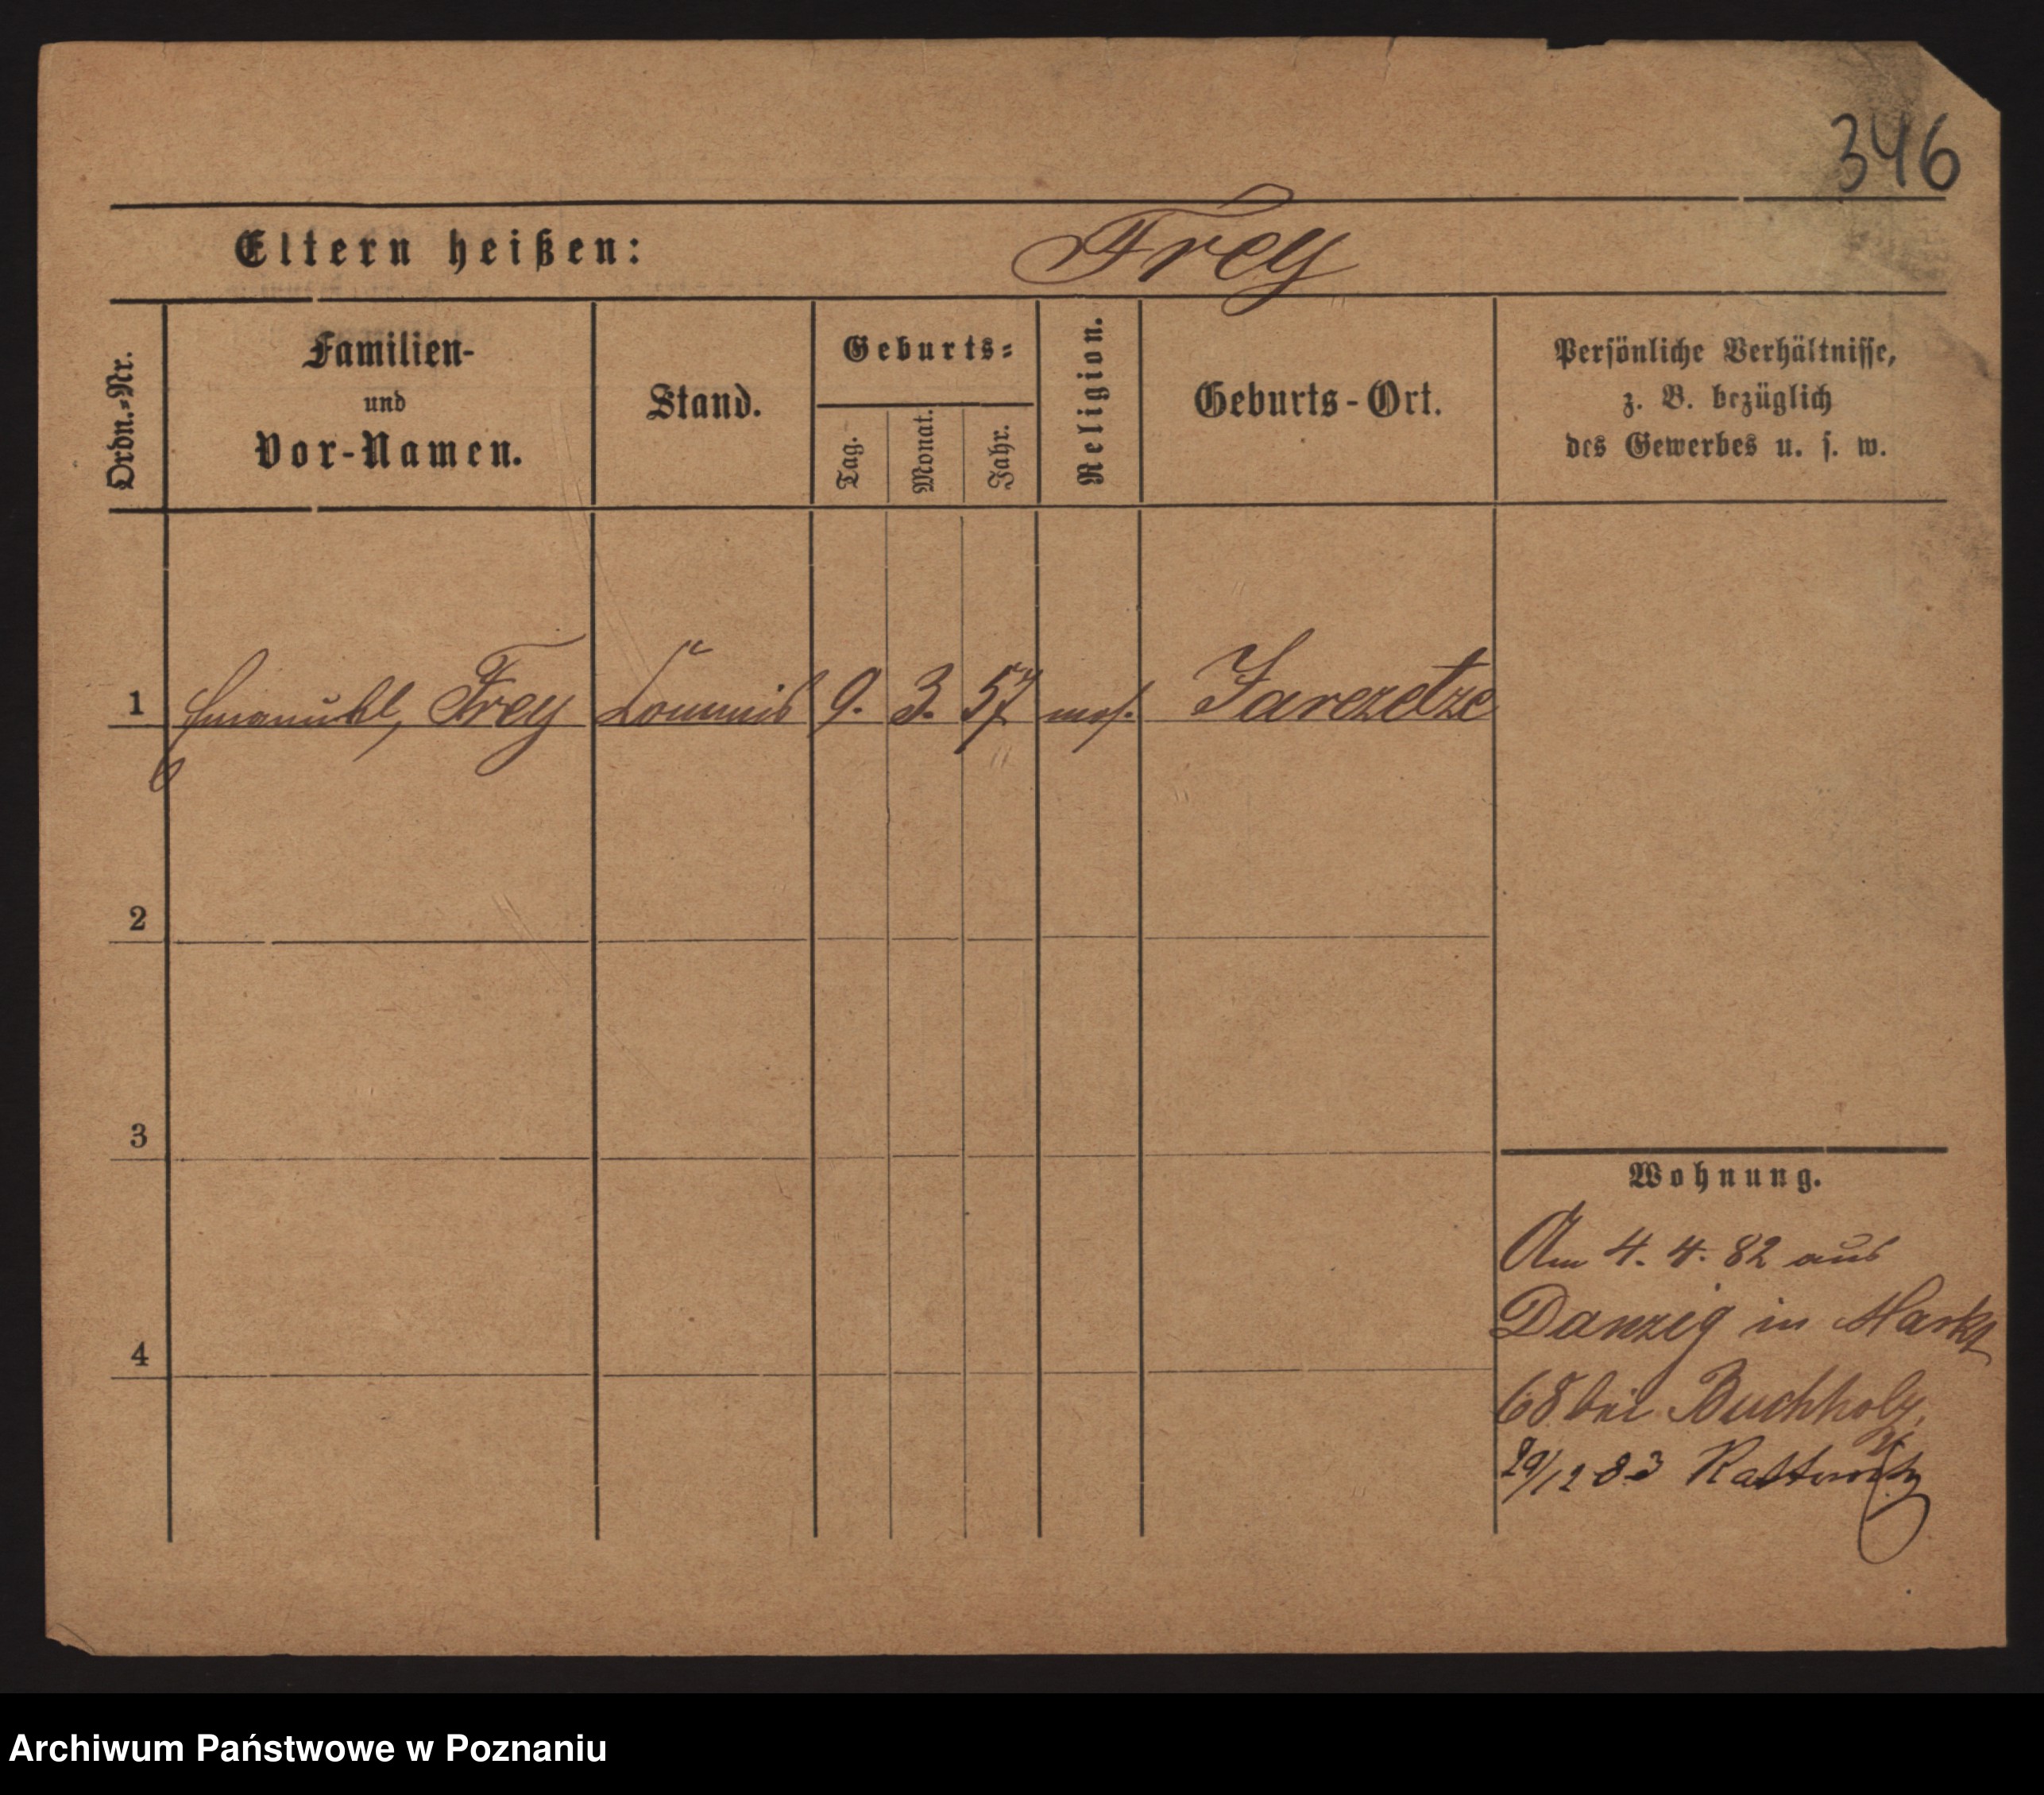 346
Eltern heißen: Frey
Ordn.-Nr.
Familien-
und
Vor-Namen.
Stand.
Geburts-
Tag.
Monat.
Jahr.
Religion.
Geburts-Ort.
Persönliche Verhältnisse,
z. B. bezüglich
des Gewerbes u. s. w.
1 Emanuhl, Frey Commis 9. 3. 57 mos. Jarezetze
2
3
4
Wohnung.
Am 4. 4. 82 aus
Danzig in Markt
68 bei Buchholz,
29/12 83 Kattowitz
Archiwum Państwowe w Poznaniu